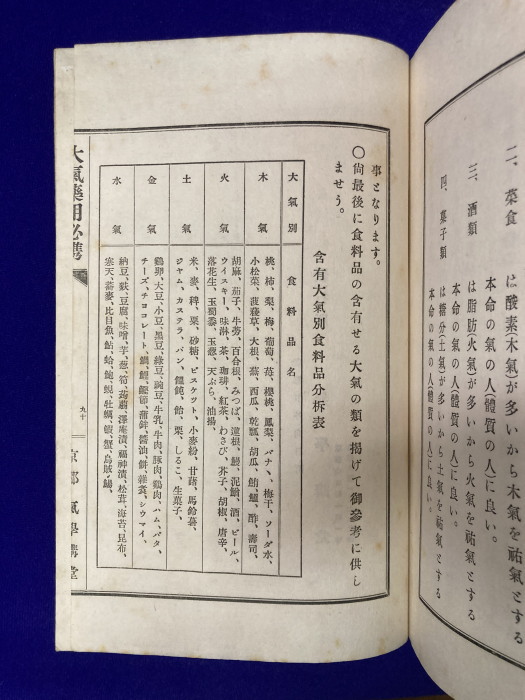 二、菜食 は酸素木氣が多いから木氣を祐氣とする
本命の氣の人(體質の人)に良い。
三、酒類 は脂肪火氣が多いから火氣を祐氣とする
本命の氣の人(體質の人)に良い。
四、菓子類 は糖分(土氣)が多いから土氣を祐氣とする
本命の氣の人(體質の人)に良い。
事となります。
〇尙最後に食料品の含有せる大氣の類を揭げて御參考に供し
ませう。
含有大氣別食料品分拆表
大氣別 食料品名
木氣 桃、柿、梨、梅、葡萄、苺、櫻桃、鳳梨、バナヽ、梅干、ソーダ水、
小松菜、菠薐草、大根、蕪、西瓜、乾瓢、胡瓜、鮪鱸、酢、壽司、
火氣 胡麻、茄子、牛蒡、百合根、みつば、蓮根、鰻、泥鰌、酒、ビール、
ウイスキー、味淋、茶、珈琲、紅茶、わさび、芥子、胡椒、唐辛、
落花生、玉蜀黍、玉葱、天ぷら、油揚、
土氣 米、麥、稗、粟、砂糖、ビスケツト、小麥粉、甘藷、馬鈴薯、
ジヤム、カステラ、パン、饂飩、飴、栗、しるこ、生菓子、
金氣 鷄卵、大豆、小豆、黑豆、綠豆、豌豆、牛乳、牛肉、豚肉、鷄肉、ハム、バタ、
チーズ、チヨコレート、鯛、鰹、鰹節、蒲鉾、醬油、餅、雜煮、シウマイ、
水氣 納豆、荻、豆腐、味噌、芋、葱、筍、蒟蒻、澤庵漬、福神漬、松茸、海苔、昆布、
寒天、蕎麥、比目魚、鮎、蛤、鮑、蜆、牡蠣、蝦、蟹、烏賊、鍋、
大氣藥用必携
九十
京都 氣學講堂